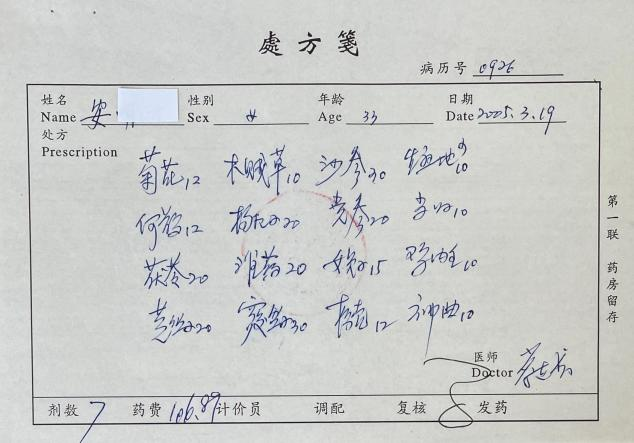 處方箋
病历号 0926
姓名 性别 年龄 日期
Name 安 Sex 女 Age 33 Date 2005.3.19
处方
Prescription
菊花12 木贼草10 沙参30 生熟地各10
何首乌12 枸杞子20 党参20 当归10
茯苓20 淮药20 女贞子15 鸡内金10
菟丝子20 30 12 神曲10
医师
Doctor
剂数 7 药费 106.89 计价员 调配 复核 发药
第一联 药房留存